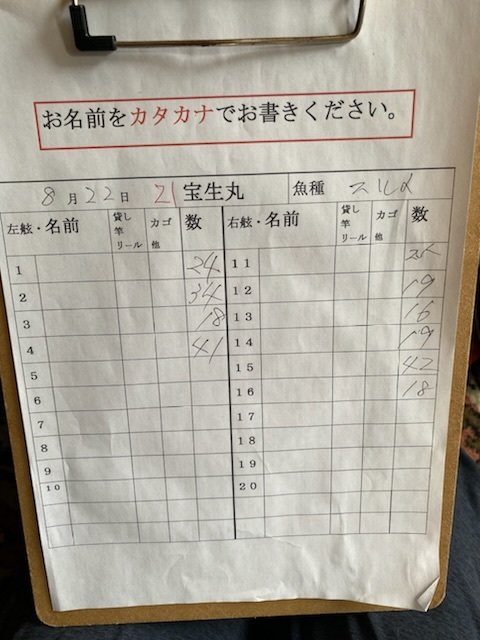 お名前をカタカナでお書きください。
8月22日 21 宝生丸 魚種 スルメ
左舷・名前 貸し竿リール カゴ他 数 右舷・名前 貸し竿リール カゴ他 数
1 24 11
2 34 12 19
3 18 13 16
4 41 14 19
5 15 42
6 16 18
7 17
8 18
9 19
10 20